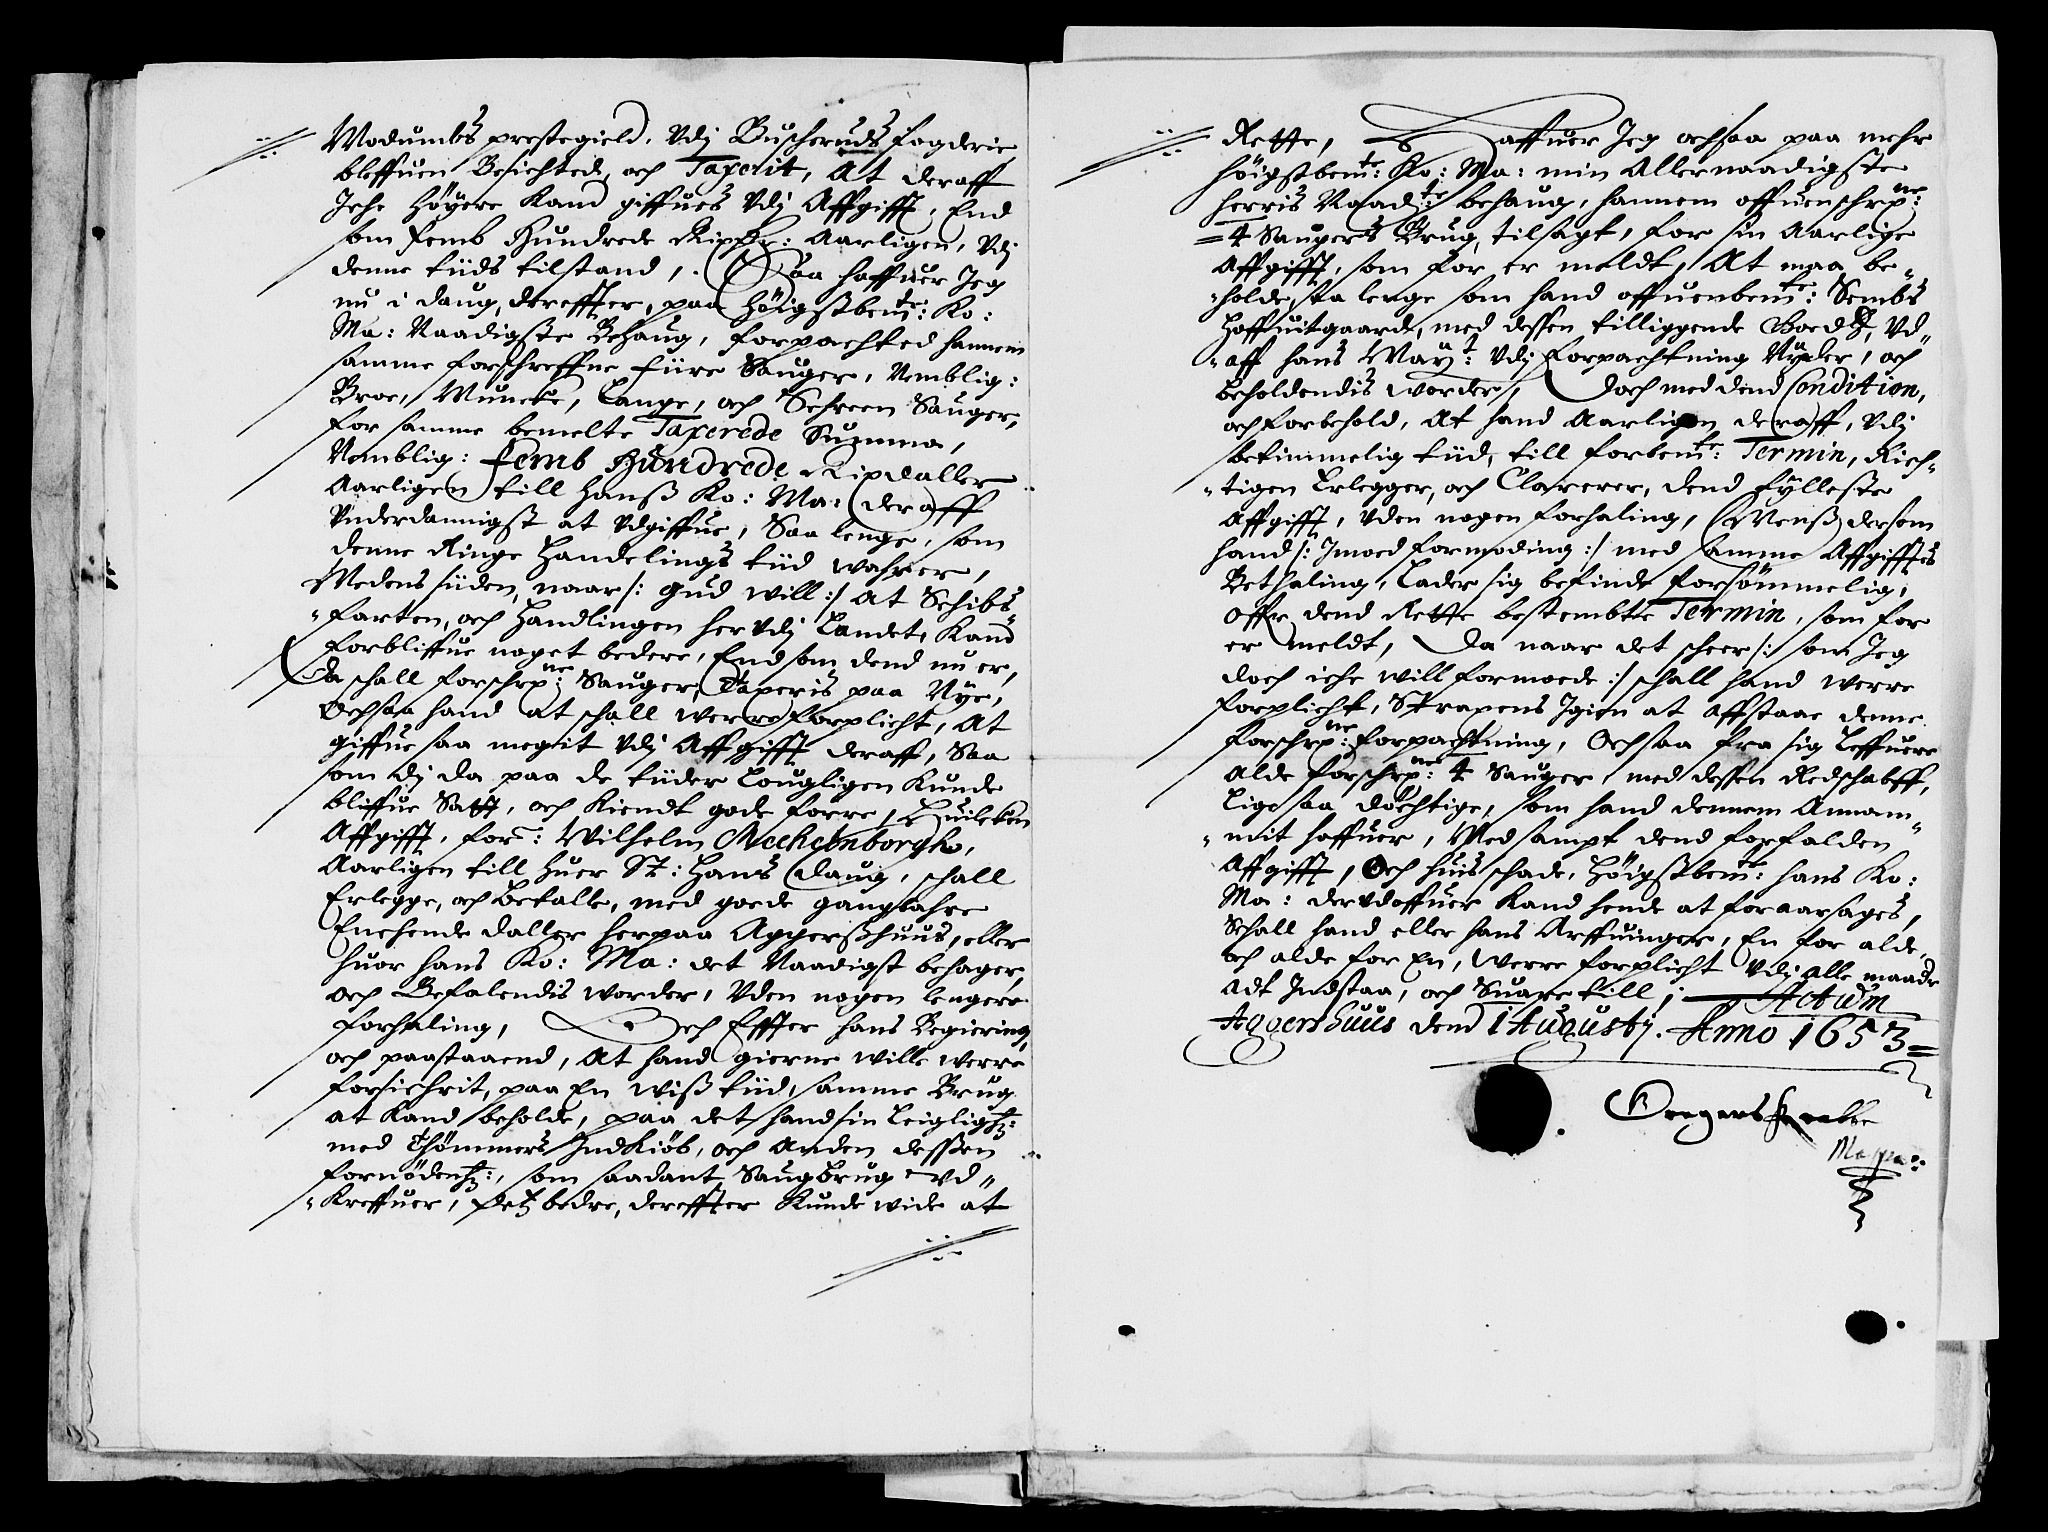 Modumbs prestegield, Vdj Buscheruds fogderie
bleffuen Besichtede, och Taxerit, At deraff
Iche Høyere Kand giffues Vdj Affgifft, End
som femb Hundrede Ripdr: Aarligen, Vdj
denne tiids tilstand, Daa haffuer Jeg
nu i daug, derefftter, paa Høigstbemte: Ko:
Ma: Naadigste Behaug, forpachted hannem
samme forschreffne fiire Sauger, Nemblig:
Broe, Muncke, Lange, och Schreen Sauger,
for samme bemelte Taxerede Summa,
Nemblig: femb Hundrede Ripdaller
Aarligen till Hanss Ko: Ma: deraff
Vnderdannigst at Vdgiffue, Saa lenge, som
denne Ringe Handelings tiid wahrer,
Medens siiden, naar /: Gud will :/ At Schibs-
-farten, och Handlingen her Vdj Landet, Kand
forbliffue noget bedere, End som dend nu er,
Da schall forschrpne: Sauger, Taxeris paa Nye,
Ochsaa hand at schall werre forplicht, At
giffue saa megit Vdj Affgifft deraff, Saa
som dj da paa de tiider Lougligen Kunde
bliffue Satt, och Kiendt gode forre, Huilcken
Affgifft, for: Wilhelm Mechelnborgh,
Aarligen till Huer St: Hans daug, schall
Erlegge, och Betalle, med goede gangbahre
Enchende daller herpaa Aggersshuus, eller
huor hans Ko: Ma: det Naadigst behager,
och Befalendis worder, Vden nogen lengere
forhaling, Och Effter hans Begiering,
och paastaaend, At hand gierne wille werre
forsichrit, paa En wiss tiid, samme Brug
at Kand beholde, paa det hand sin Leiglighed:
med Thømmers Indkiøb, och Anden dessen
fornødenhed:, som saadant Saugbrug Vd-
-Kreffuer, Dets bedre, dereffter Kunde wide at
Rette, Haffuer Jeg ochsaa paa mehr
høigstbemte: Ko: Ma: min Allernaadigste
herris Naadigste behaug, hannem offuenschrpne:
=4 Saugers Brug, tilsagt, for sin Aarlige
Affgifft, som for er meldt, At maa be-
-holde, saa lenge som hand offuenbemte: Sembs
Hoffuitgaarde, med dessen tilliggende Goeds, Vd-
-aff hans May:tt Vdj forpachtning Nyder, och
beholdendis worder, Doch med dend Condition,
och forbehold, At hand Aarligen deraff, Vdj
betimmelig tiid, till forbemte: Termin, Rich-
-tigen Erlegger, och Clarerer, dend fylleste
Affgifft, Vden nogen forhaling, Menss dersom
hand /: Imoed formoding :/ med samme Affgifftes
Bethaling, Lader sig befinde forsømmelig,
offr dend Rette bestembte Termin, som for
er meldt, Da naar det scheer /: som Jeg
doch iche will formoede :/ schall hand werre
forplicht, Straxens Igien at affstaae denne
forschrpne: forpachtning, Ochsaa fra sig Leffuere
Alde forschrpne: 4 Sauger, med dessen Redschabff,
Lige saa døchtige, som hand dennem Annam-
-mit haffuer, Medsampt dend forfalden
Affgifft, Och huis schade, Høigstbemte: hans Ko:
Ma: derVdoffuer Kand hende at foraarsages,
Schall hand eller hans Arffuinger, En for alde,
och alde for En, werre forplicht Vdj alle maade
Adt Indstaa, och Suare till; Actum
Aggershuus dend 1 Augustj. Anno 1653=
Gregers Krabbe